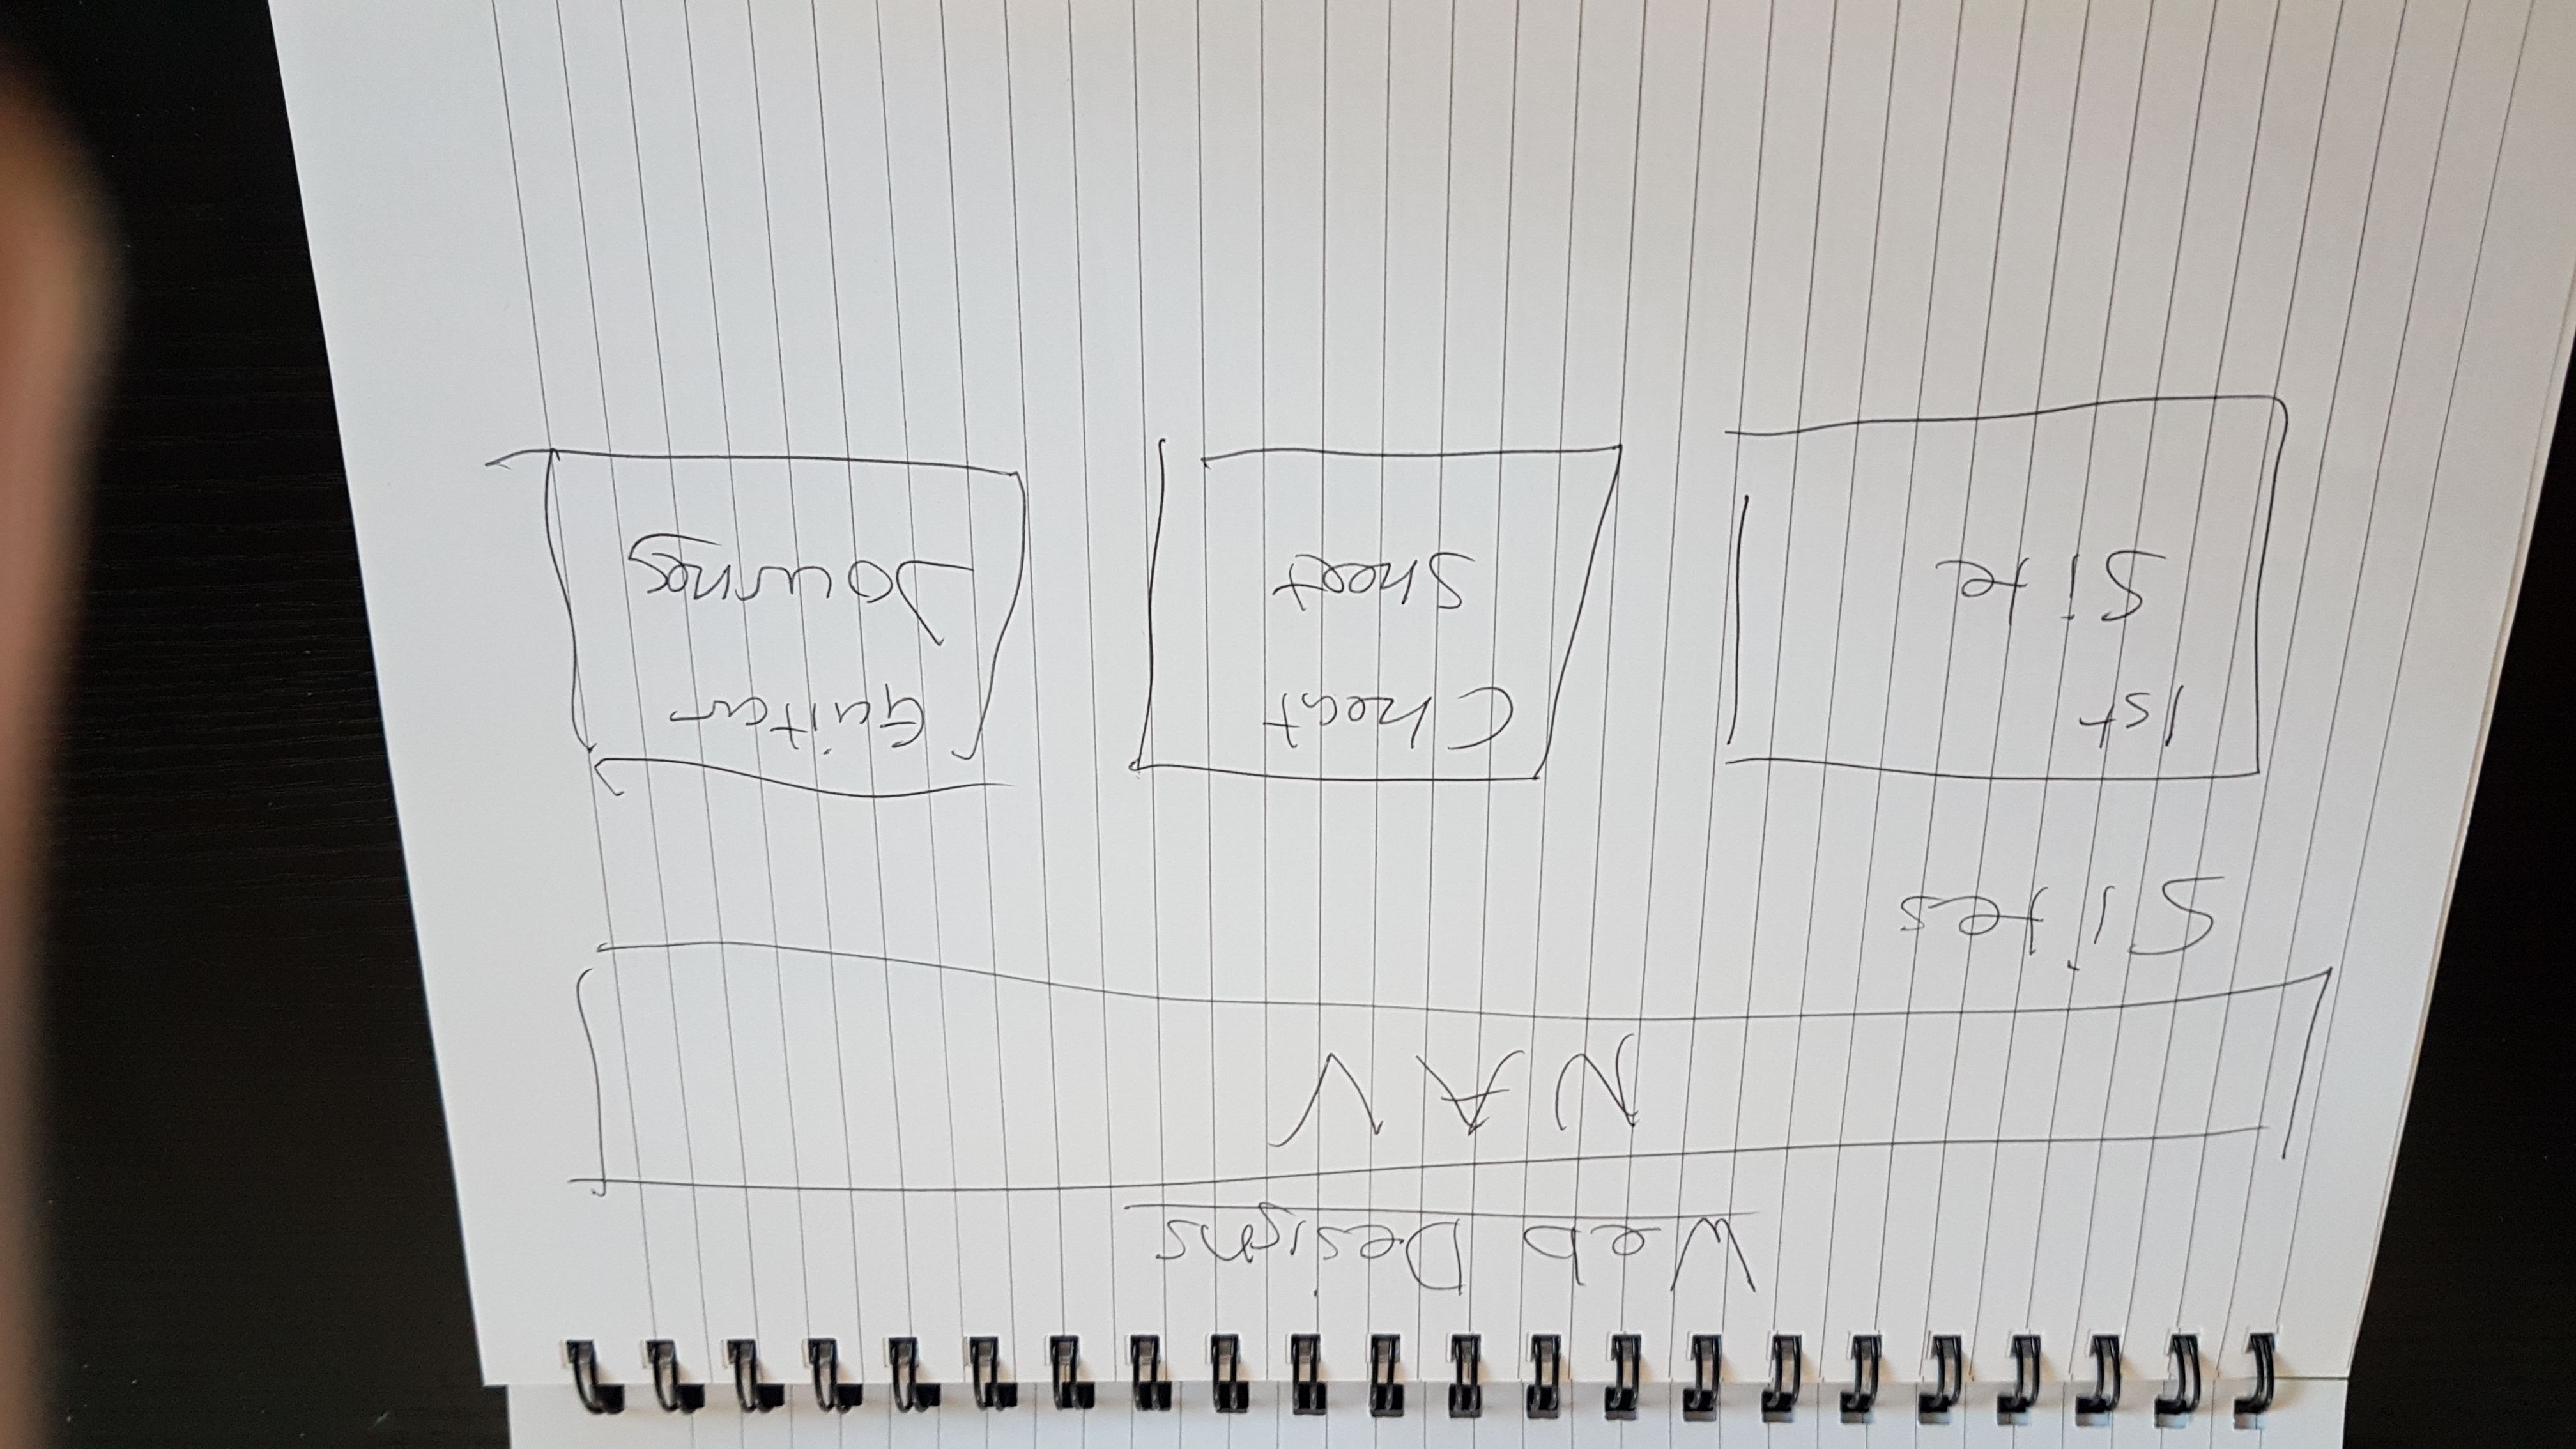 Web Designs
NAV
Sites
1st
Site
Cheat
Sheet
Guitar
Journey